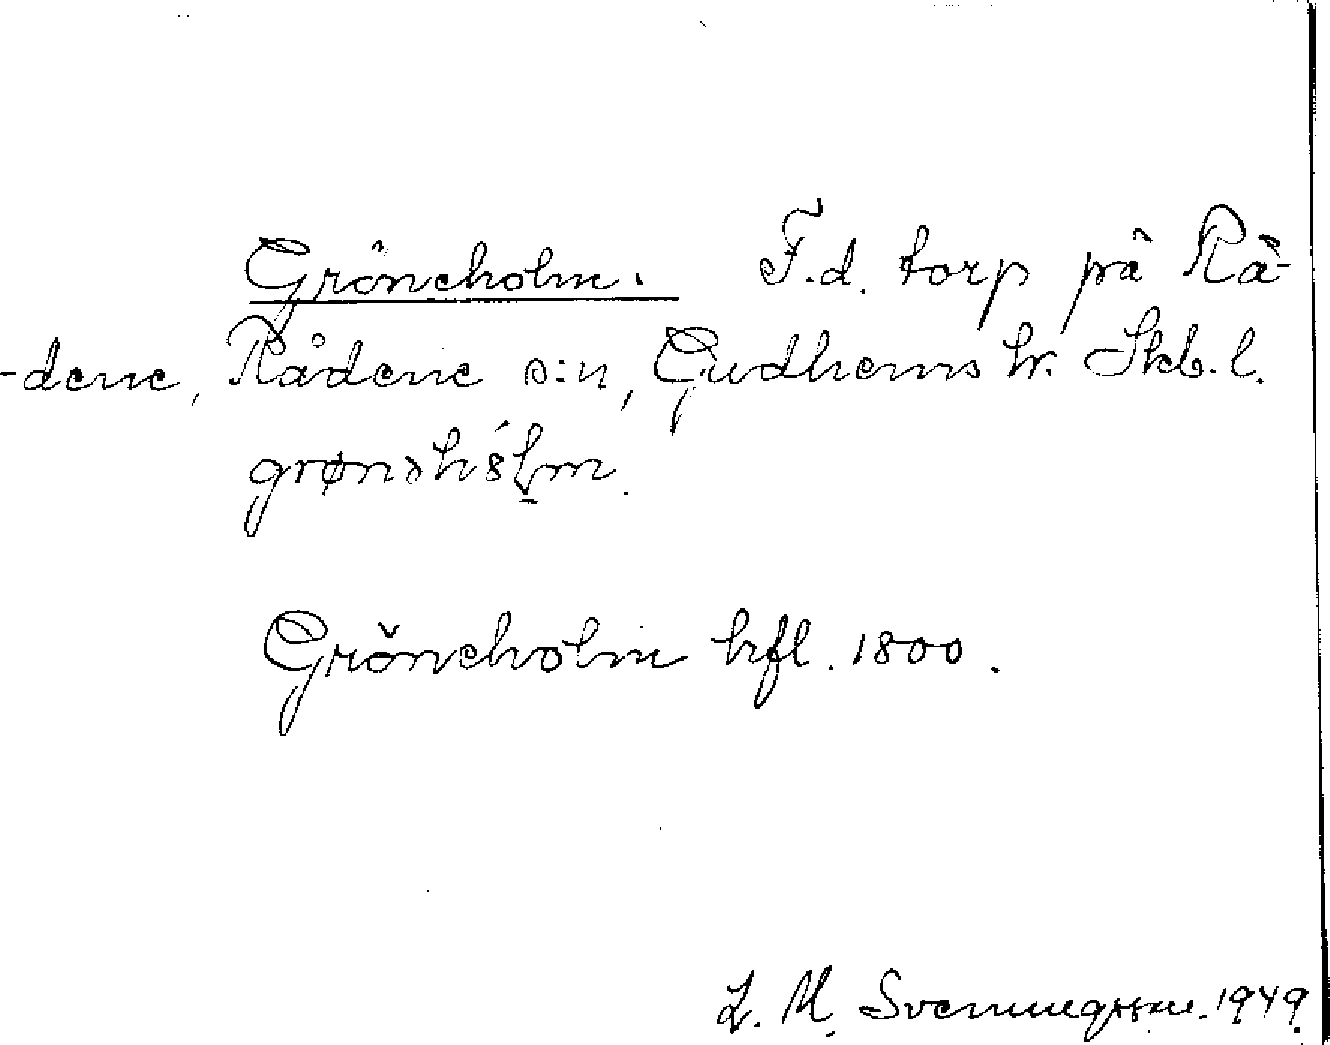 Gröneholm. F.d. torp på Rå-
-dene, Rådene s:n, Gudhems hr. Skb. l.
Gröneholm hfl. 1800.
L. M. Svenungsson. 1949.